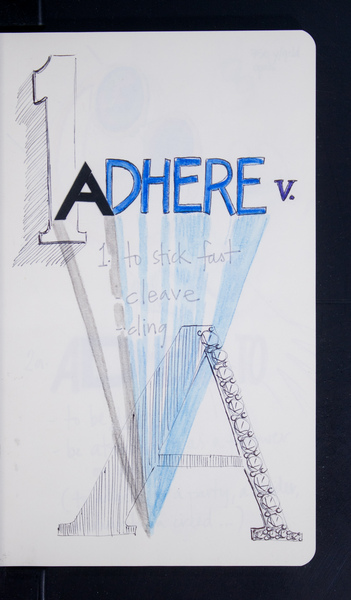 1
ADHERE v.
1. to stick fast
-cleave
-cling
A